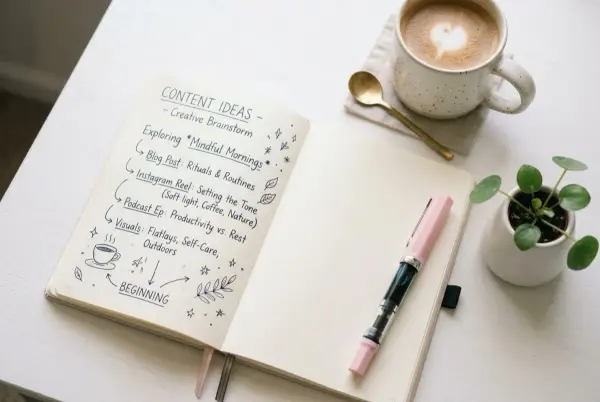 CONTENT IDEAS
- Creative Brainstorm -
Exploring *Mindful Mornings*
Blog Post: Rituals & Routines
Instagram Reel: Setting the Tone
(Soft light, Coffee, Nature)
Podcast Ep: Productivity vs. Rest
Visuals: Flatlays, Self-Care,
Outdoors
BEGINNING